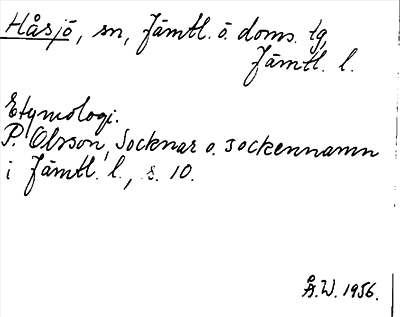 Håsjö, sn, Jämtl. ö. doms. tg,
Jämtl. l.
Etymologi.
P. Olsson, Socknar o. sockennamn
i Jämtl. l., s. 10.
Å.W. 1956.